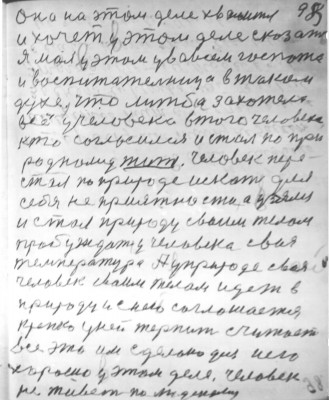 она на этом деле хвалится 985
и хочет у этом деле сказат
я мол у этом у всем госпожа
и воспитателница в таком
духе, что литба захотело
вет учеловека втого человека
кто согласился и стал по при
родному жит, человек пере-
стал по природе искат для
себя не приятноста, а взял
и стал природу своим телом
пробуждат, учеловека своя
температура А у природе своя
человек своим телом идет в
природу и снею соглошается
крепко у ней терпит считает
все это им сделоно для него
хорошо у этом деле, человек
не живет по людскому